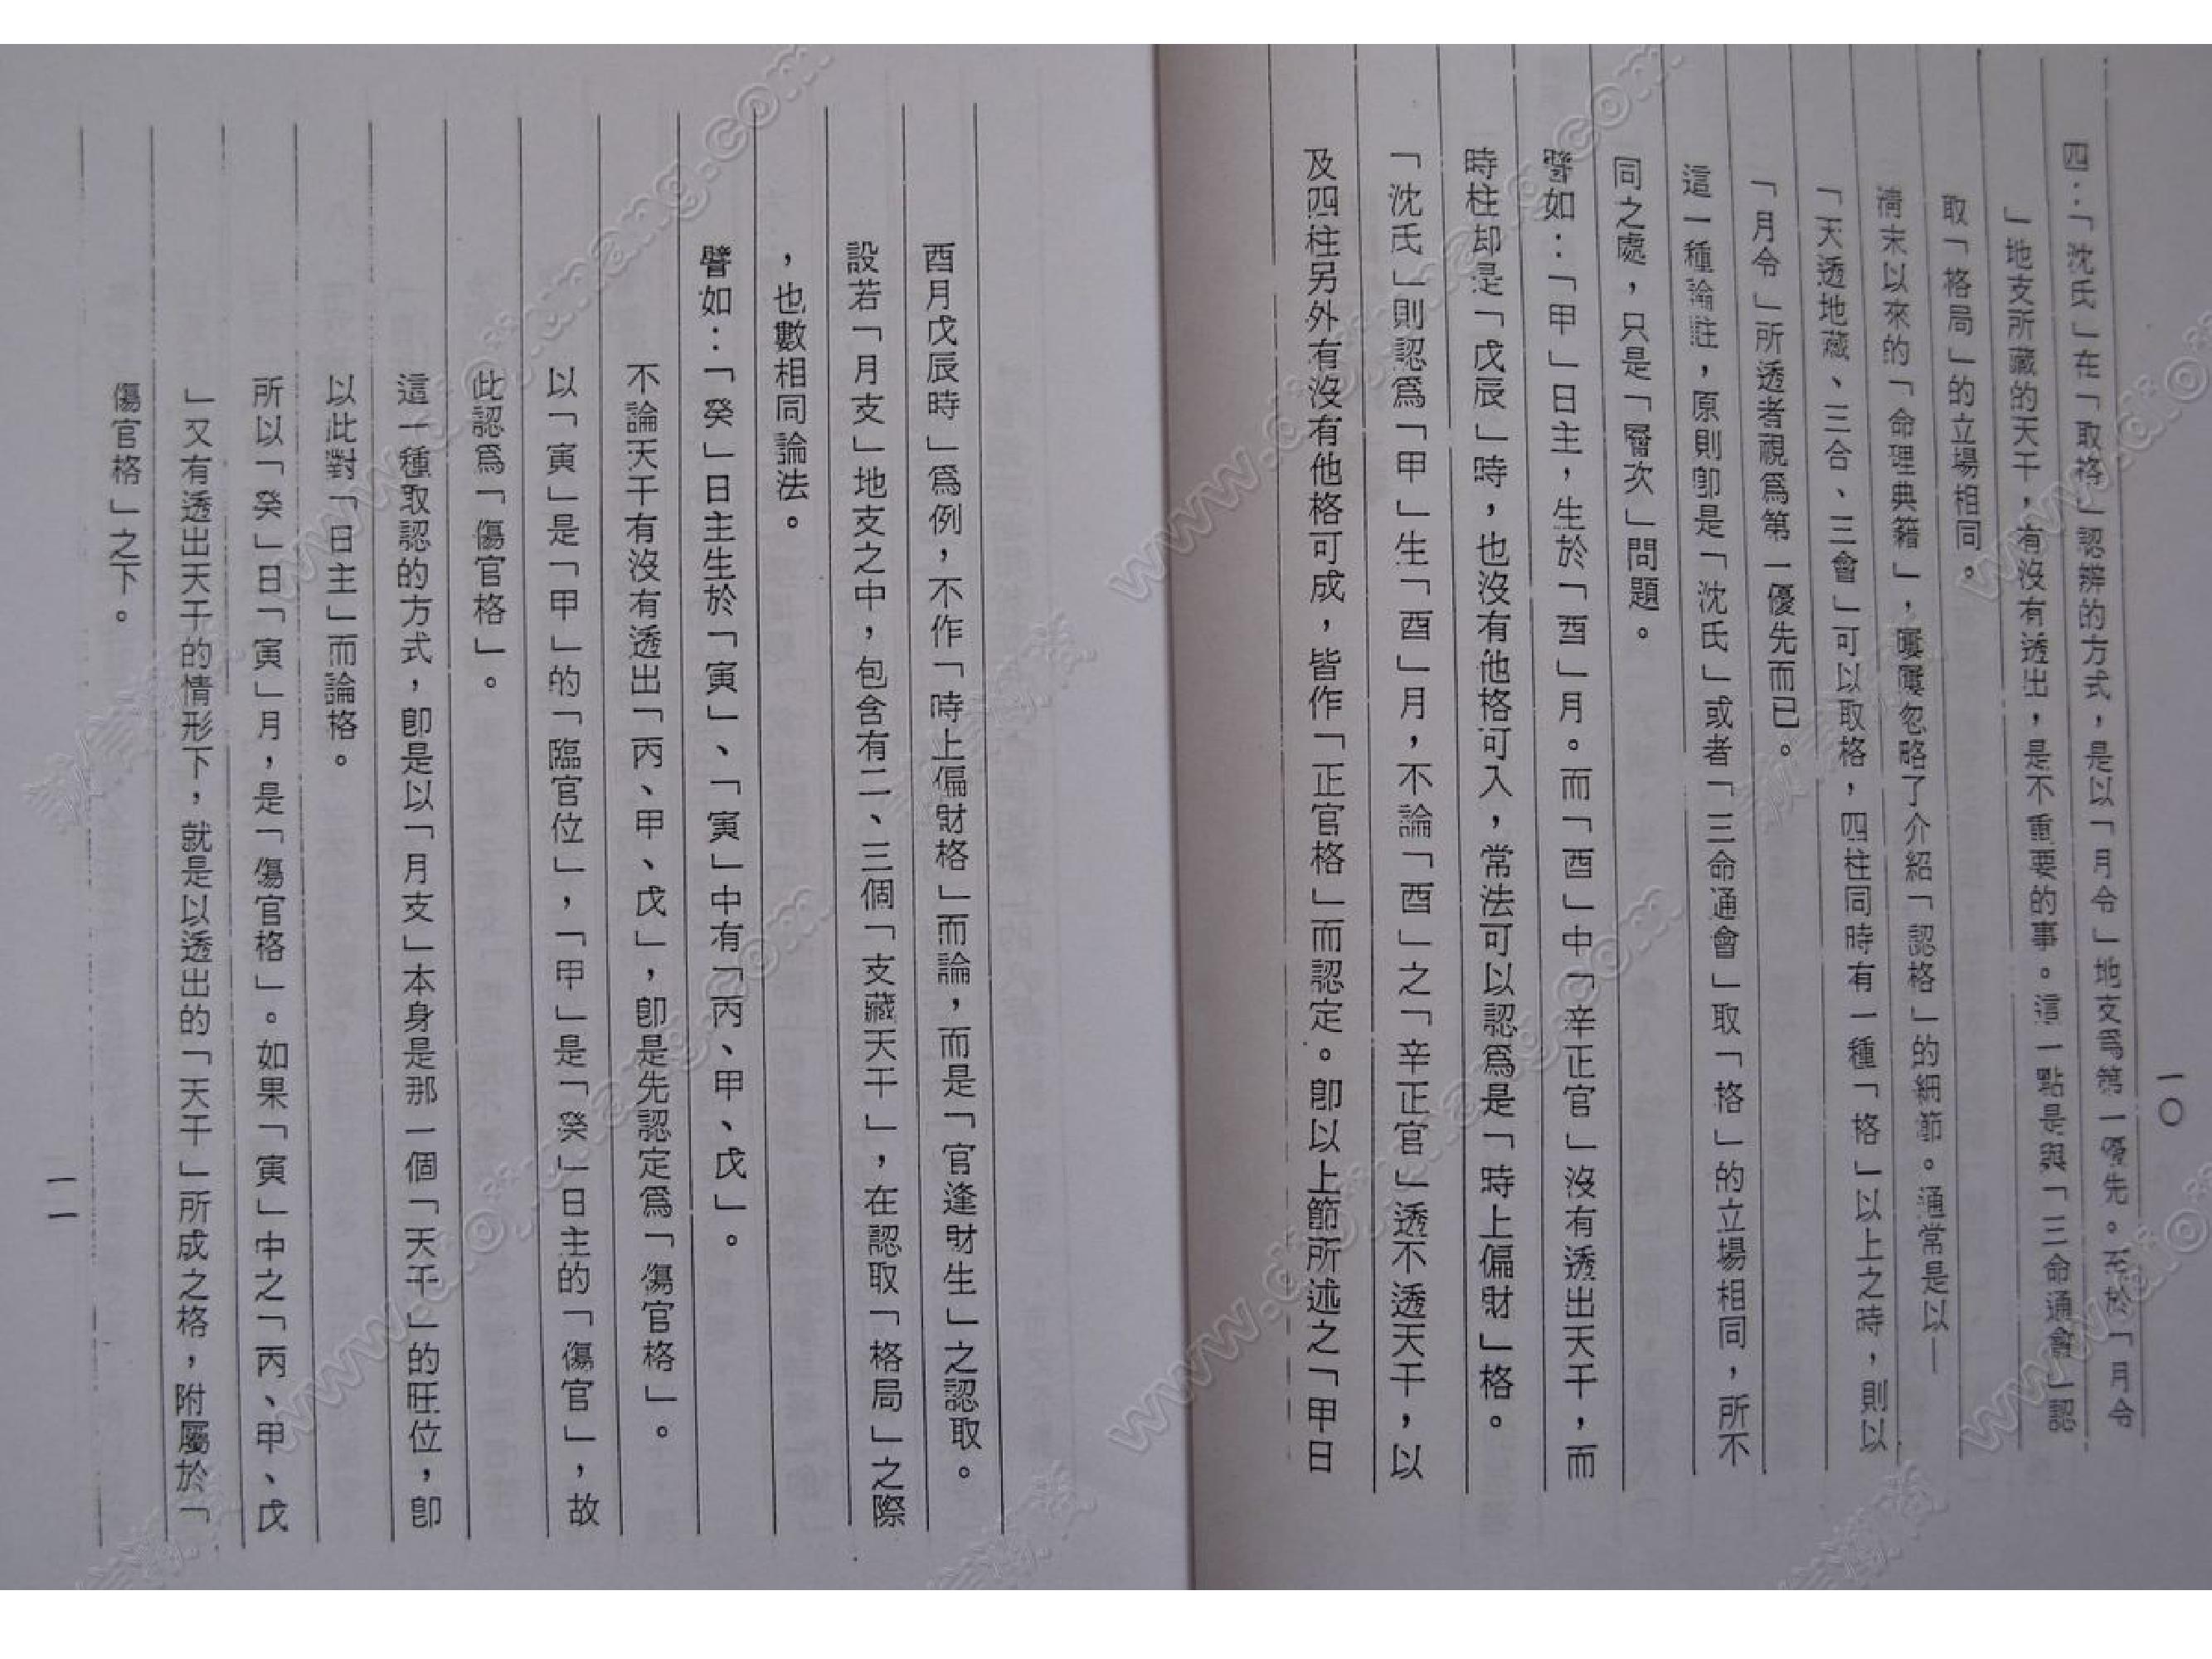 一〇
四：「沈氏」在「取格」認辨的方式，是以「月令」地支爲第一優先。至於「月令
」地支所藏的天干，有沒有透出，是不重要的事。這一點是與「三命通會」認
取「格局」的立場相同。
清末以來的「命理典籍」，屢屢忽略了介紹「認格」的細節。通常是以—
「天透地藏、三合、三會」可以取格，四柱同時有一種「格」以上之時，則以
「月令」所透者視爲第一優先而已。
這一種論註，原則卽是「沈氏」或者「三命通會」取「格」的立場相同，所不
同之處，只是「層次」問題。
譬如：「甲」日主，生於「酉」月。而「酉」中「辛正官」沒有透出天干，而
時柱却是「戊辰」時，也沒有他格可入，常法可以認爲是「時上偏財」格。
「沈氏」則認爲「甲」生「酉」月，不論「酉」之「辛正官」透不透天干，以
及四柱另外有沒有他格可成，皆作「正官格」而認定。卽以上節所述之「甲日
酉月戊辰時」爲例，不作「時上偏財格」而論，而是「官逢財生」之認取。
設若「月支」地支之中，包含有二、三個「支藏天干」，在認取「格局」之際
，也數相同論法。
譬如：「癸」日主生於「寅」、「寅」中有「丙、甲、戊」。
不論天干有沒有透出「丙、甲、戊」，卽是先認定爲「傷官格」。
以「寅」是「甲」的「臨官位」，「甲」是「癸」日主的「傷官」，故
此認爲「傷官格」。
這一種取認的方式，卽是以「月支」本身是那一個「天干」的旺位，卽
以此對「日主」而論格。
所以「癸」日「寅」月，是「傷官格」。如果「寅」中之「丙、甲、戊
」又有透出天干的情形下，就是以透出的「天干」所成之格，附屬於「
傷官格」之下。
一一
www.daojiang.com